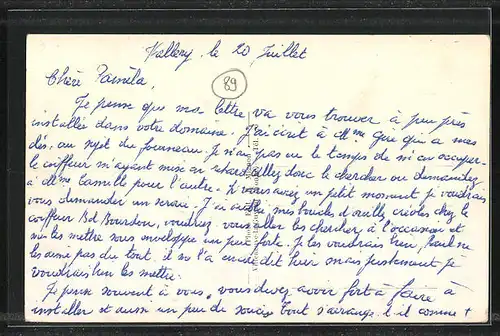 Vallery, le 20 Juillet
Chère Paméla,
89
Je pense que ma lettre va vous trouver à peu près
installée dans votre domaine. J'ai écrit à Mme que qui a mes
clés, au sujet du fourneau. Je n'ai pas eu le temps de m'en occuper
le coiffeur m'ayant mise en retard allez donc le chercher ou demandez
à Mme Camille pour l'autre. Si vous avez un petit moment je voudrais
vous demander un service. J'ai oublié mes boucles d'oreilles créoles chez le
coiffeur Bd Bourdon, voudriez vous aller les chercher à l'occasion et
me les mettre sous enveloppe un peu forte. Je les voudrais bien, Paul ne
les aime pas du tout, il me l'a encore dit hier mais justement je
voudrais bien les mettre.
Je pense souvent à vous, vous devez avoir fort à faire à
installer et aussi un peu de soucis tout s'arrange t-il comme